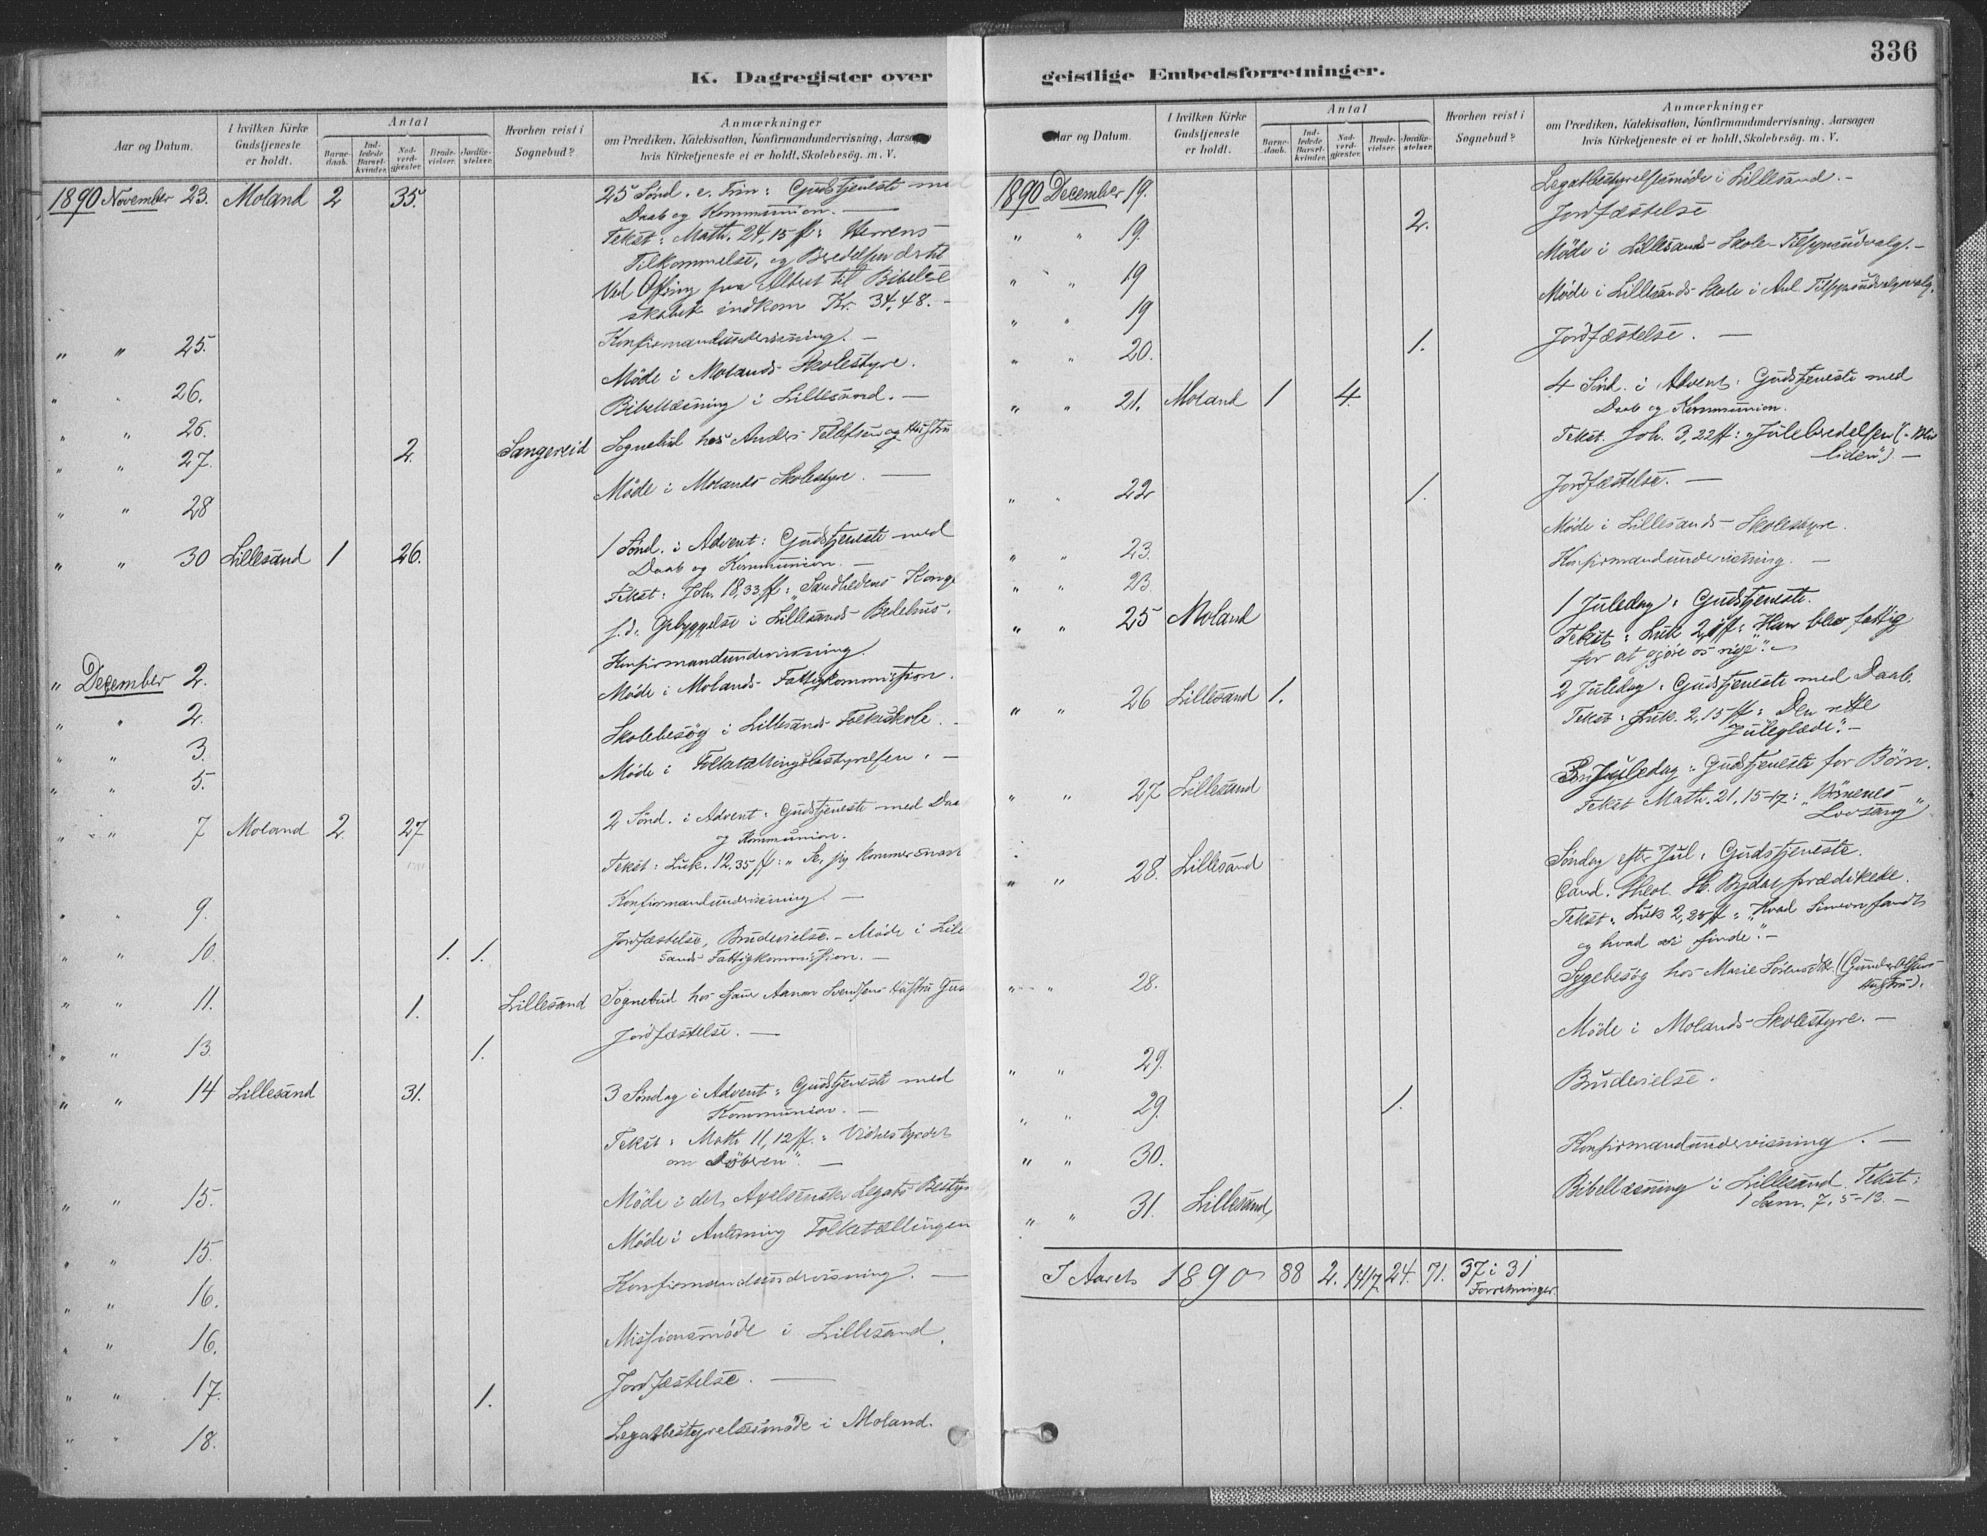 K. Dagregister over
Aar og Datum.
I hvilken Kirke Gudstjeneste er holdt.
Antal
Barnedaab.
Indledede Barselkvinder.
Nadverdgjester.
Brudevielser.
Jordfæstelser.
Hvorhen reist i Sognebud?
Anmærkninger
om Prædiken, Katekisation, Konfirmandundervisning, Aarsagen
hvis Kirketjeneste ei er holdt, Skolebesög. m. V.
1890 November 23. Moland 2 35. 25 Sønd. e. Trin: Gudstjeneste med
Daab og Kommunion. —
Tekst: Math. 24,15 ff: Herrens
Tilkommelse, og
Ved Offring paa Altret til Bibelsel
skabet indkom Kr. 34,48. -
" " 25. Konfirmandundervisning. -
Møde i Molands Skolestyre.
" " 26. Bibellæsning i Lillesand. -
" " 26.
" " 27. 2. Sangereid Sognebud hos Anders Tellefsen og Hustru
" " 28 Møde i Molands Skolestyre. —
" " 30 Lillesand 1 26. 1 Sønd. i Advent: Gudstjeneste med
Daab og Kommunion. -
Tekst: Joh. 18,33 ff: "Sandhedens Konge
f. d: Opbyggelse i Lillesands Bedehus.
" December 2. Konfirmandundervisning.
" " 2. Møde i Molands Fattigkommission.
" " 3. Skolebesøg i Lillesands Folkeskole. -
" " 5. Møde i Folketællingsbestyrelsen. -
" " 7 Moland 2 27 2 Sønd. i Advent: Gudstjeneste med Daab
og Kommunion.
Tekst: Luk. 12,35 ff: "Se, jeg kommer snart
" " 9. Konfirmandundervisning. —
" " 10. 1. 1. Jordfæstelse, Brudevielse. - Møde i Lille
sands Fattigkommission. -
" " 11. 1. Lillesand Sognebud hos Aanon Svendsens Hustru
" " 13. 1. Jordfæstelse. —
" " 14 Lillesand 31. 3 Søndag i Advent: Gudstjeneste med
Kommunion. -
Tekst: Math 11,12 ff.: Vidnesbyrdet
om Døberen". —
" " 15. Møde i det Axelsenske Legats Besty
" " 15. Møde i Anledning Folketællingen
" " 16. Konfirmandundervisning. —
" " 16. Missionsmøde i Lillesand.
" " 17. 1. Jordfæstelse. —
" " 18. Legatbestyrelsesmøde i Moland.
geistlige Embedsforretninger.
336
Aar og Datum.
I hvilken Kirke Gudstjeneste er holdt.
Antal
Barnedaab.
Indledede Barselkvinder.
Nadverdgjester.
Brudevielser.
Jordfæstelser.
Hvorhen reist i Sognebud?
Anmærkninger
om Prædiken, Katekisation, Konfirmandundervisning, Aarsagen
hvis Kirketjeneste ei er holdt, Skolebesög. m. V.
1890 December 19. Legatbestyrelsesmøde i Lillesand. -
" " 19. 2. Jordfæstelse
" " 19 Møde i Lillesands Skole-Tilsynsudvalg. -
" " 19 Møde i Lillesands Skole i Anl. Tilsynsudvalgsvalg.
" " 20. 1. Jordfæstelse. —
" " 21. Moland 1 4. 4 Sønd. i Advent: Gudstjeneste med
Daab og Kommunion.
Tekst. Joh. 3,22 ff:
liden"). -
" " 22 1. Jordfæstelse. —
" " 23. Møde i Lillesands Skolestyre.
" " 23. Konfirmandundervisning. -
" " 25 Moland 1 Juledag: Gudstjeneste.
Tekst: Luk 2,1 ff: "Han blev fattig
for at gjøre os rige". -
" " 26 Lillesand 1. 2 Juledag: Gudstjeneste med Daab.
Tekst: Luk. 2,15 ff: Den rette
Juleglæde". -
" " 27 Lillesand 3 Juledag: Gudstjeneste for Børn.
Tekst Math. 21,15-17: "Børnenes
Lovsang"
" " 28. Lillesand Søndag efter Jul: Gudstjeneste.
Cand. theol. H. prædikede.
Tekst: Luk 2,25 ff: "Hvad Simeon fandt
og hvad vi finde". -
" " 28. Sygebesøg hos Marie Sørensdtr. (Gunder Olsens
Hustru).
" " 29. Møde i Molands Skolestyre. -
" " 29. 1. Brudevielse.
" " 30. Konfirmandundervisning. —
" " 31. Lillesand Bibellæsning i Lillesand. Tekst:
1 Sam. 7,5-13. -
I Aaret 1890 88 2. 1417. 24. 71. 37 i 31
Forretninger